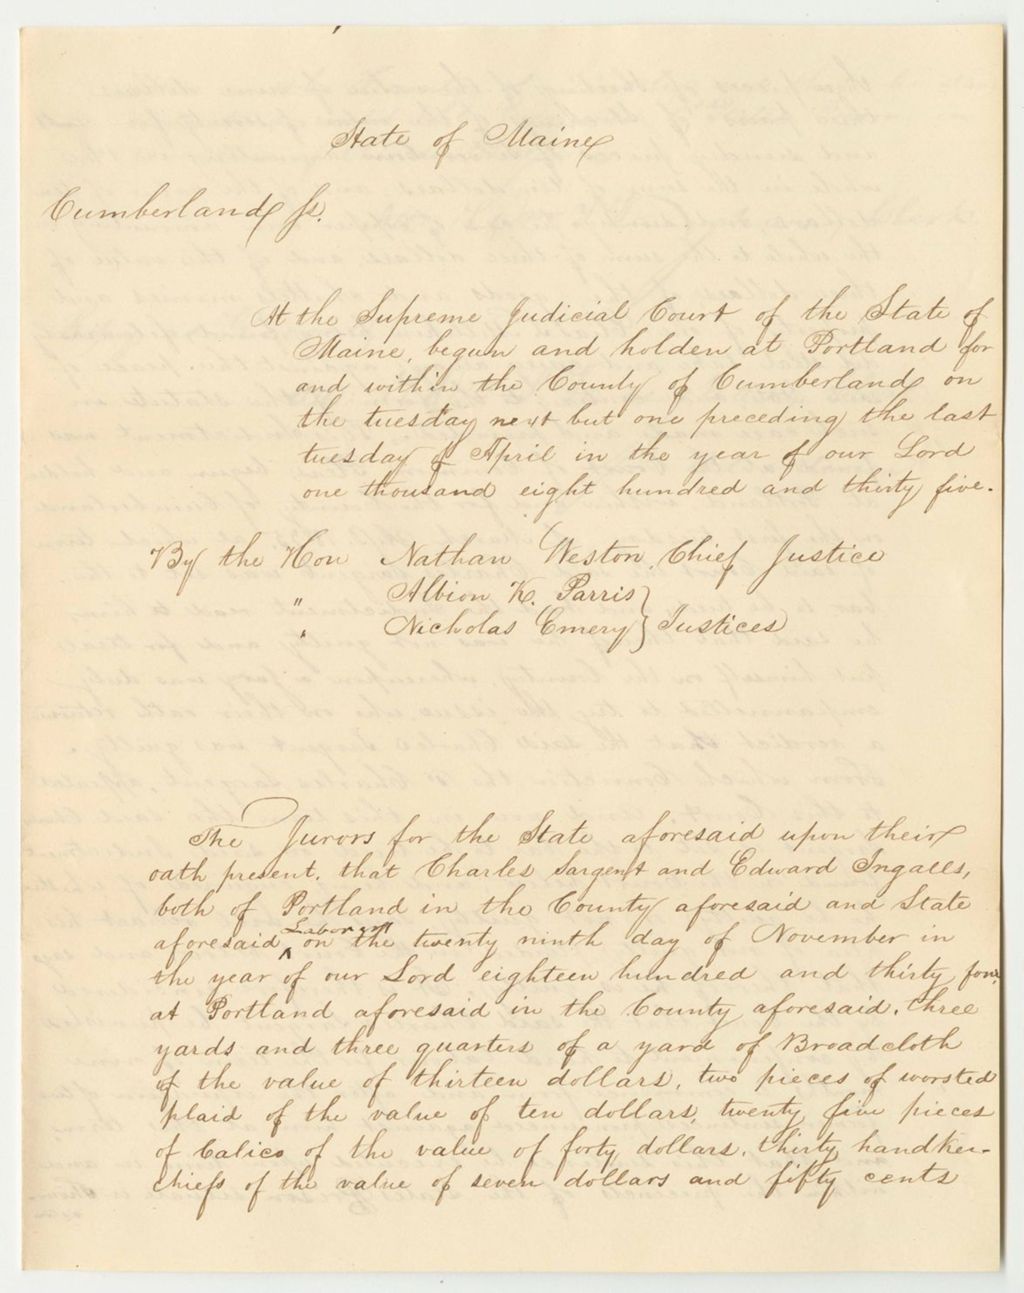 State of Maine
Cumberland ss.
At the Supreme Judicial Court of the State of
Maine, begun and holden at Portland for
and within the County of Cumberland on
the tuesday next but one preceding the last
tuesday of April in the year of our Lord
one thousand eight hundred and thirty five.
By the Hon Nathan Weston, Chief Justice
" Albion K. Parris
" Nicholas Emery } Justices
The Jurors for the State aforesaid upon their
oath present, that Charles Sargent and Edward Ingalls,
both of Portland in the County aforesaid and State
Laborers
aforesaid ^ on the twenty ninth day of November in
the year of our Lord eighteen hundred and thirty four
at Portland aforesaid in the County aforesaid, three
yards and three quarters of a yard of Broadcloth
of the value of thirteen dollars, two pieces of worsted
plaid of the value of ten dollars, twenty five pieces
of Calico of the value of forty dollars, thirty handker-
chiefs of the value of seven dollars and fifty cents